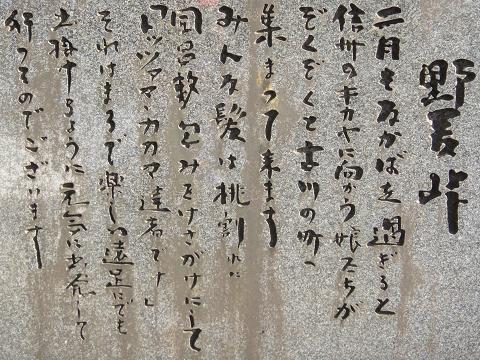 野麦峠
二月もなかばを過ぎると
信州のキカヤに向かう娘たちが
ぞくぞくと古川の町へ
集まって来ます
みんな髪は桃割れに
風呂敷包みをけさがけにして
「トッツァマ、カカマ達者でナ」
それはまるで楽しい遠足にでも
出掛けるように元気に出発して
行ったのでございます